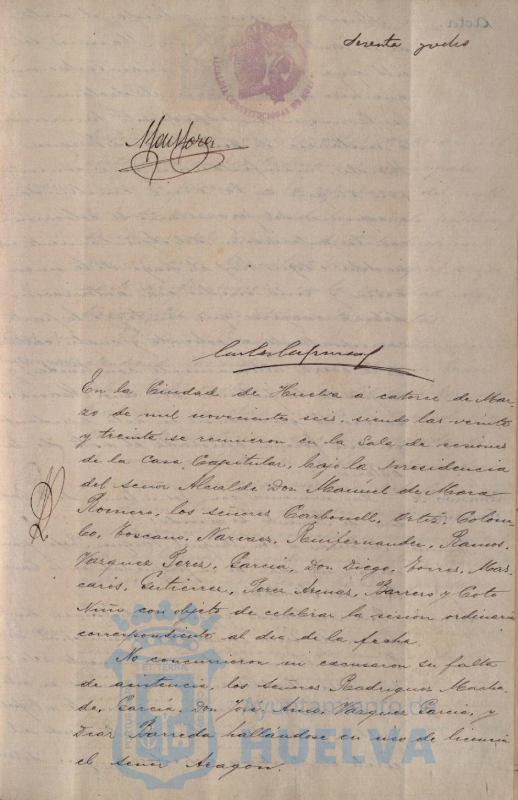 Acta.
Setenta y ocho
ALCALDIA CONSTITUCIONAL DE HUELVA
M. de Mora
En la Ciudad de Huelva á catorce de Mar-
zo de mil novecientos seis, siendo las veinte
y treinta se reunieron en la Sala de sesiones
de la Casa Capitular, bajo la presidencia
del señor Alcalde Don Manuel de Mora
Romero, los señores Carbonell, Ortiz, Colom-
bo, Toscano, Narvaez, Ruifernandez, Ramos,
Vazquez Perez, Garcia, Don Diego, Torres, Mas-
carós, Gutierrez, Perez Arenas, Barrero y Coto
Niño con objeto de celebrar la sesion ordinaria
correspondiente al dia de la fecha
No concurrieron ni excusaron su falta
de asistencia, los señores Rodriguez Macha-
do, Garcia, Don José, Amo, Vazquez Garcia, y
Diaz Barreda hallándose en uso de licencia
el señor Aragon.
Ayuntamiento de
HUELVA